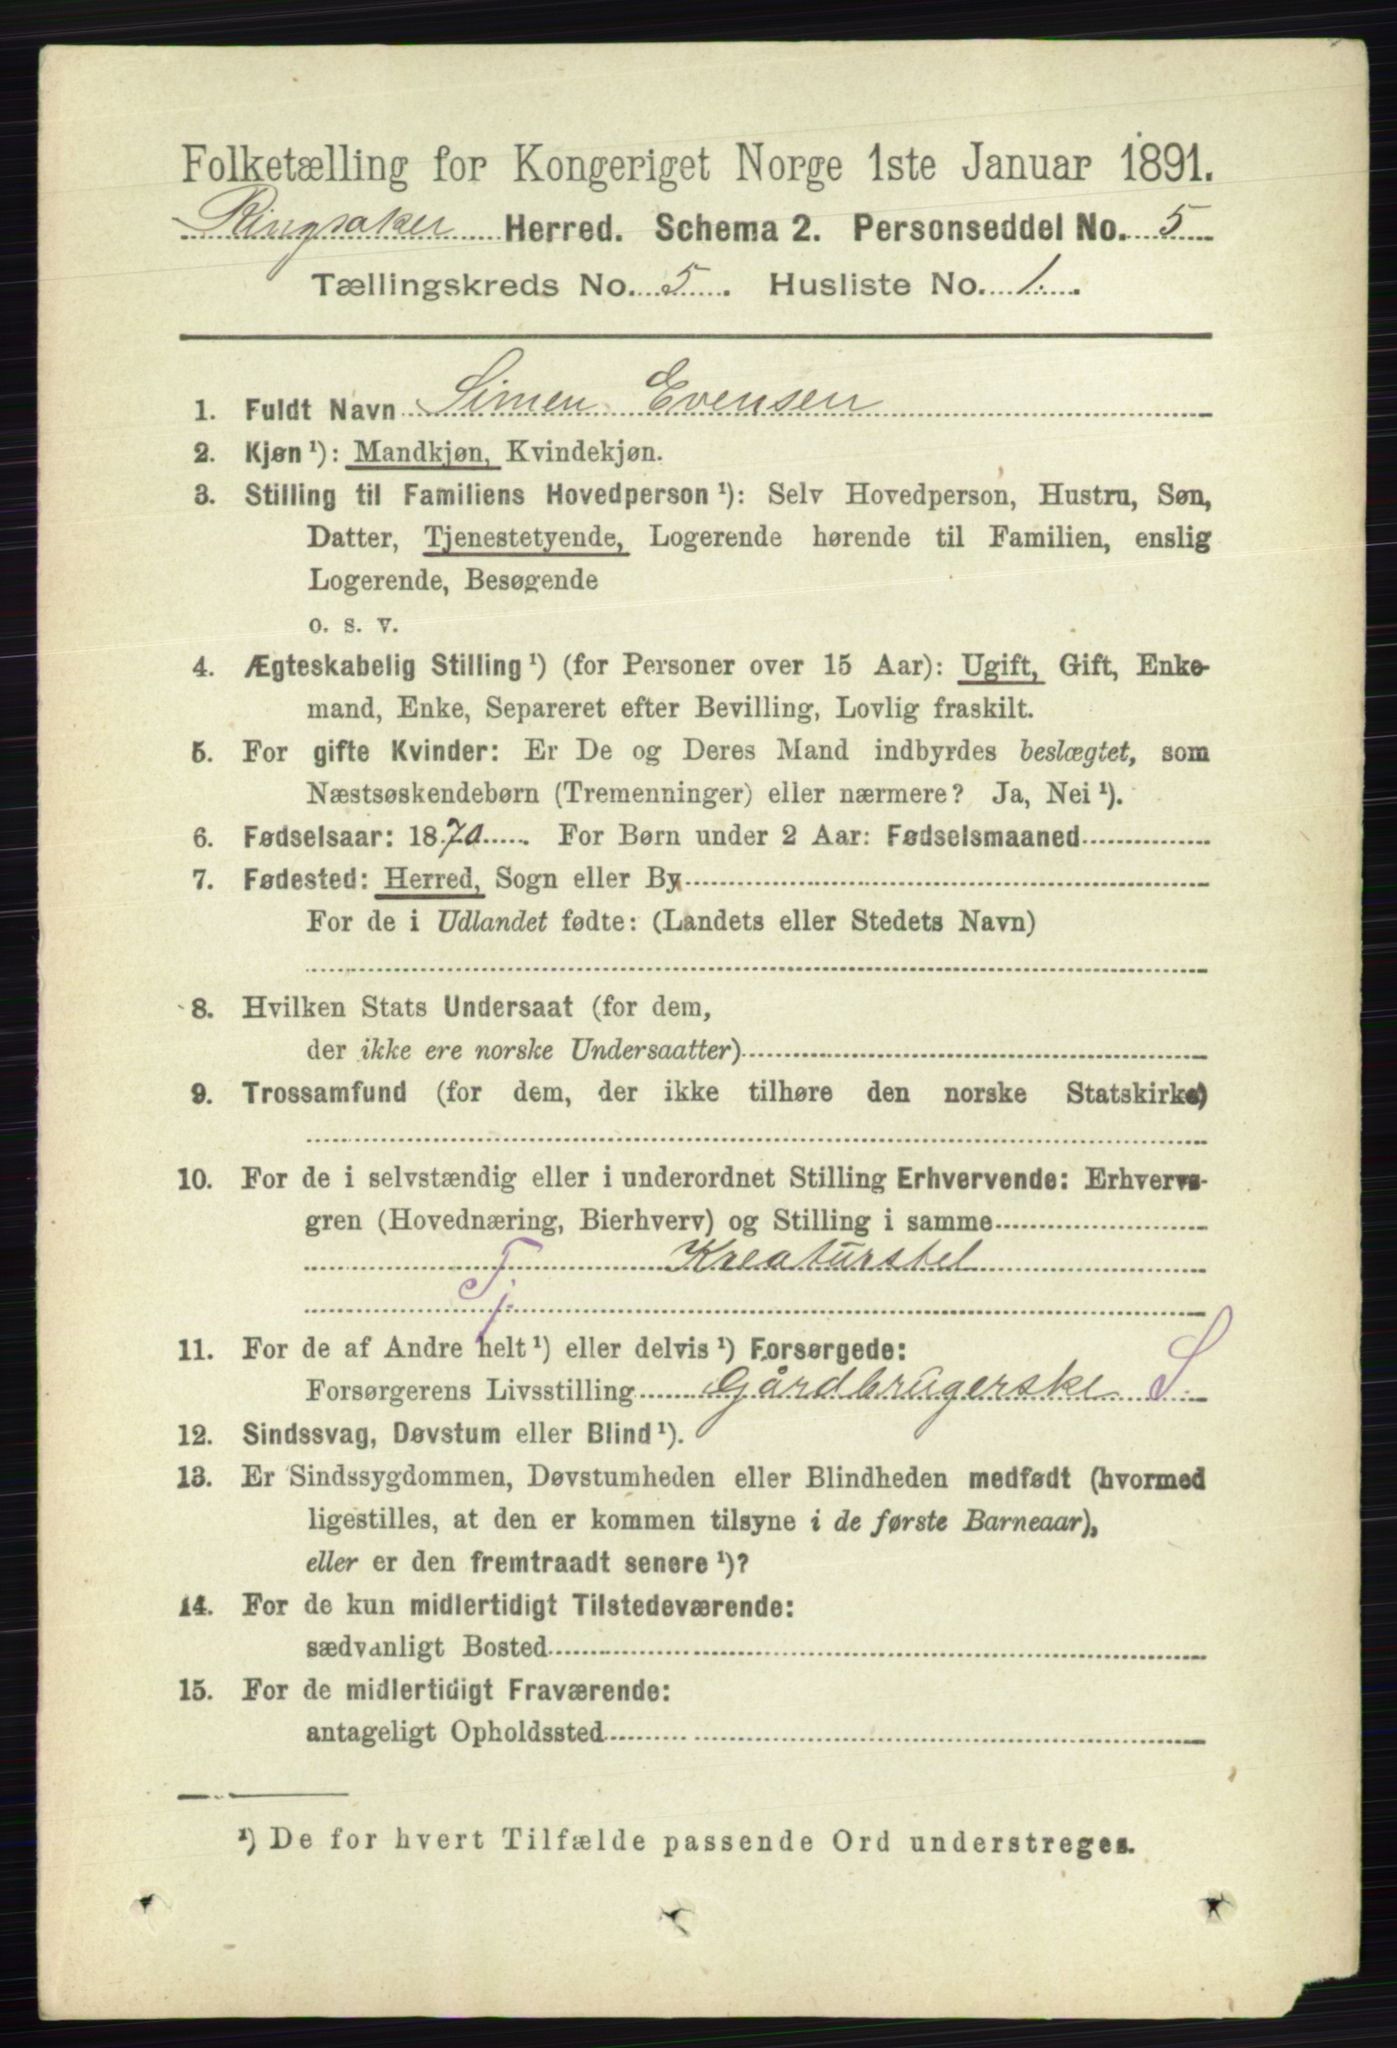 Folketælling for Kongeriget Norge 1ste Januar 1891.
Ringsaker Herred. Schema 2. Personseddel No. 5
Tællingskreds No. 5. Husliste No. 1.
1. Fuldt Navn Simen Evensen
2. Kjøn ¹): Mandkjøn, Kvindekjøn.
3. Stilling til Familiens Hovedperson ¹): Selv Hovedperson, Hustru, Søn,
Datter, Tjenestetyende, Logerende hørende til Familien, enslig
Logerende, Besøgende
o. s. v.
4. Ægteskabelig Stilling ¹) (for Personer over 15 Aar): Ugift, Gift, Enke-
mand, Enke, Separeret efter Bevilling, Lovlig fraskilt.
5. For gifte Kvinder: Er De og Deres Mand indbyrdes beslægtet, som
Næstsøskendebørn (Tremenninger) eller nærmere? Ja, Nei ¹).
6. Fødselsaar: 1870. For Børn under 2 Aar: Fødselsmaaned
7. Fødested: Herred, Sogn eller By
For de i Udlandet fødte: (Landets eller Stedets Navn)
8. Hvilken Stats Undersaat (for dem,
der ikke ere norske Undersaatter)
9. Trossamfund (for dem, der ikke tilhøre den norske Statskirke)
10. For de i selvstændig eller i underordnet Stilling Erhvervende: Erhvervs-
gren (Hovednæring, Bierhverv) og Stilling i samme
Tj. Kreaturstel
11. For de af Andre helt ¹) eller delvis ¹) Forsørgede:
Forsørgerens Livsstilling Gårdbrugerske S.
12. Sindssvag, Døvstum eller Blind ¹).
13. Er Sindssygdommen, Døvstumheden eller Blindheden medfødt (hvormed
ligestilles, at den er kommen tilsyne i de første Barneaar),
eller er den fremtraadt senere ¹)?
14. For de kun midlertidigt Tilstedeværende:
sædvanligt Bosted
15. For de midlertidigt Fraværende:
antageligt Opholdssted
¹) De for hvert Tilfælde passende Ord understreges.